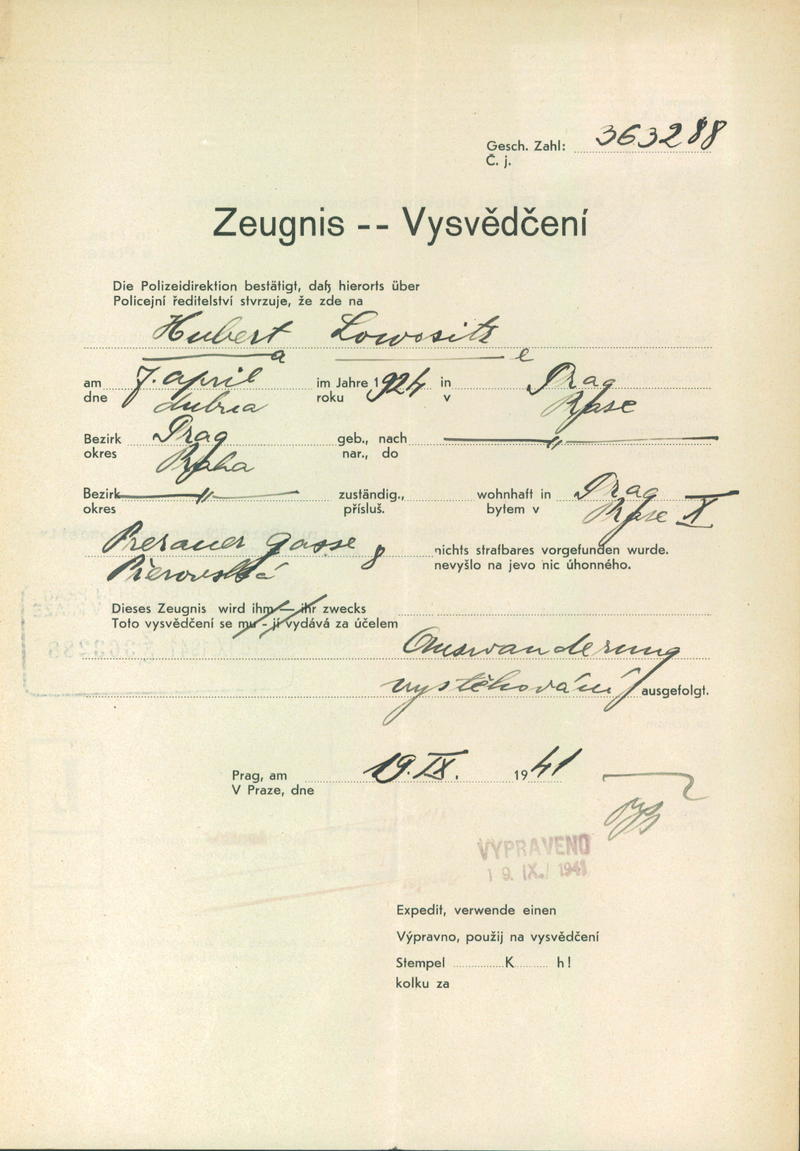 Gesch. Zahl: 363288
Č. j.
Zeugnis -- Vysvědčení
Die Polizeidirektion bestätigt, daß hierorts über
Policejní ředitelství stvrzuje, že zde na
Hubert Lowositz
a e
am 7. april im Jahre 1924 in Prag
dne dubna roku v Praze
Bezirk Prag geb., nach "
okres Praha nar., do
Bezirk " zuständig., wohnhaft in Prag
okres přísluš. bytem v Praze X
Prerauer gasse 8 nichts strafbares vorgefunden wurde.
Přerovská nevyšlo na jevo nic úhonného.
Dieses Zeugnis wird ihm — ihr zwecks
Toto vysvědčení se mu - jí vydává za účelem
Auswanderung
vystěhování ausgefolgt.
Prag, am 19. IX. 1941
V Praze, dne
VYPRAVENO
19. IX. 1941
Expedit, verwende einen
Výpravno, použij na vysvědčení
Stempel K h!
kolku za